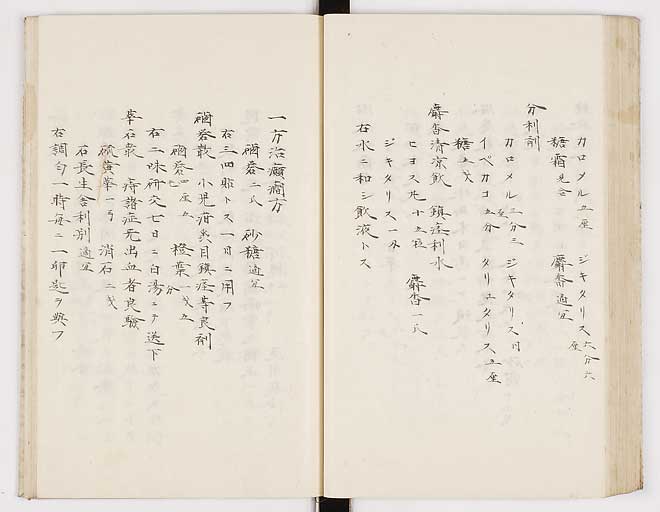 カロメル五厘 ジキタリス六分六厘
糖霜見合 麝香適宜
分利剤
カロメル三分三厘 ジキタリス同
イペカコ五分 タリュタリス五厘
糖五戋
麝香清凉飲 鎮痙利水
ヒヨス凡十五粒 麝香一氏
ジキタリス一分
右水ニ和シ飲液トス
一方治癲癇方
磠砂二氏 砂糖適宜
右三四貼トス一日ニ用フ
散 小児疳眼目鎮痙等良剤
四厘五 橙葉一戋五分
右二味研交七日ニ白湯ニテ送下
莘石散 痔諸症无出血者良験
硫黄華一弓 消石二戋
右長生舎利別適宜
右調匀一時毎ニ一卵匙ヲ與フ